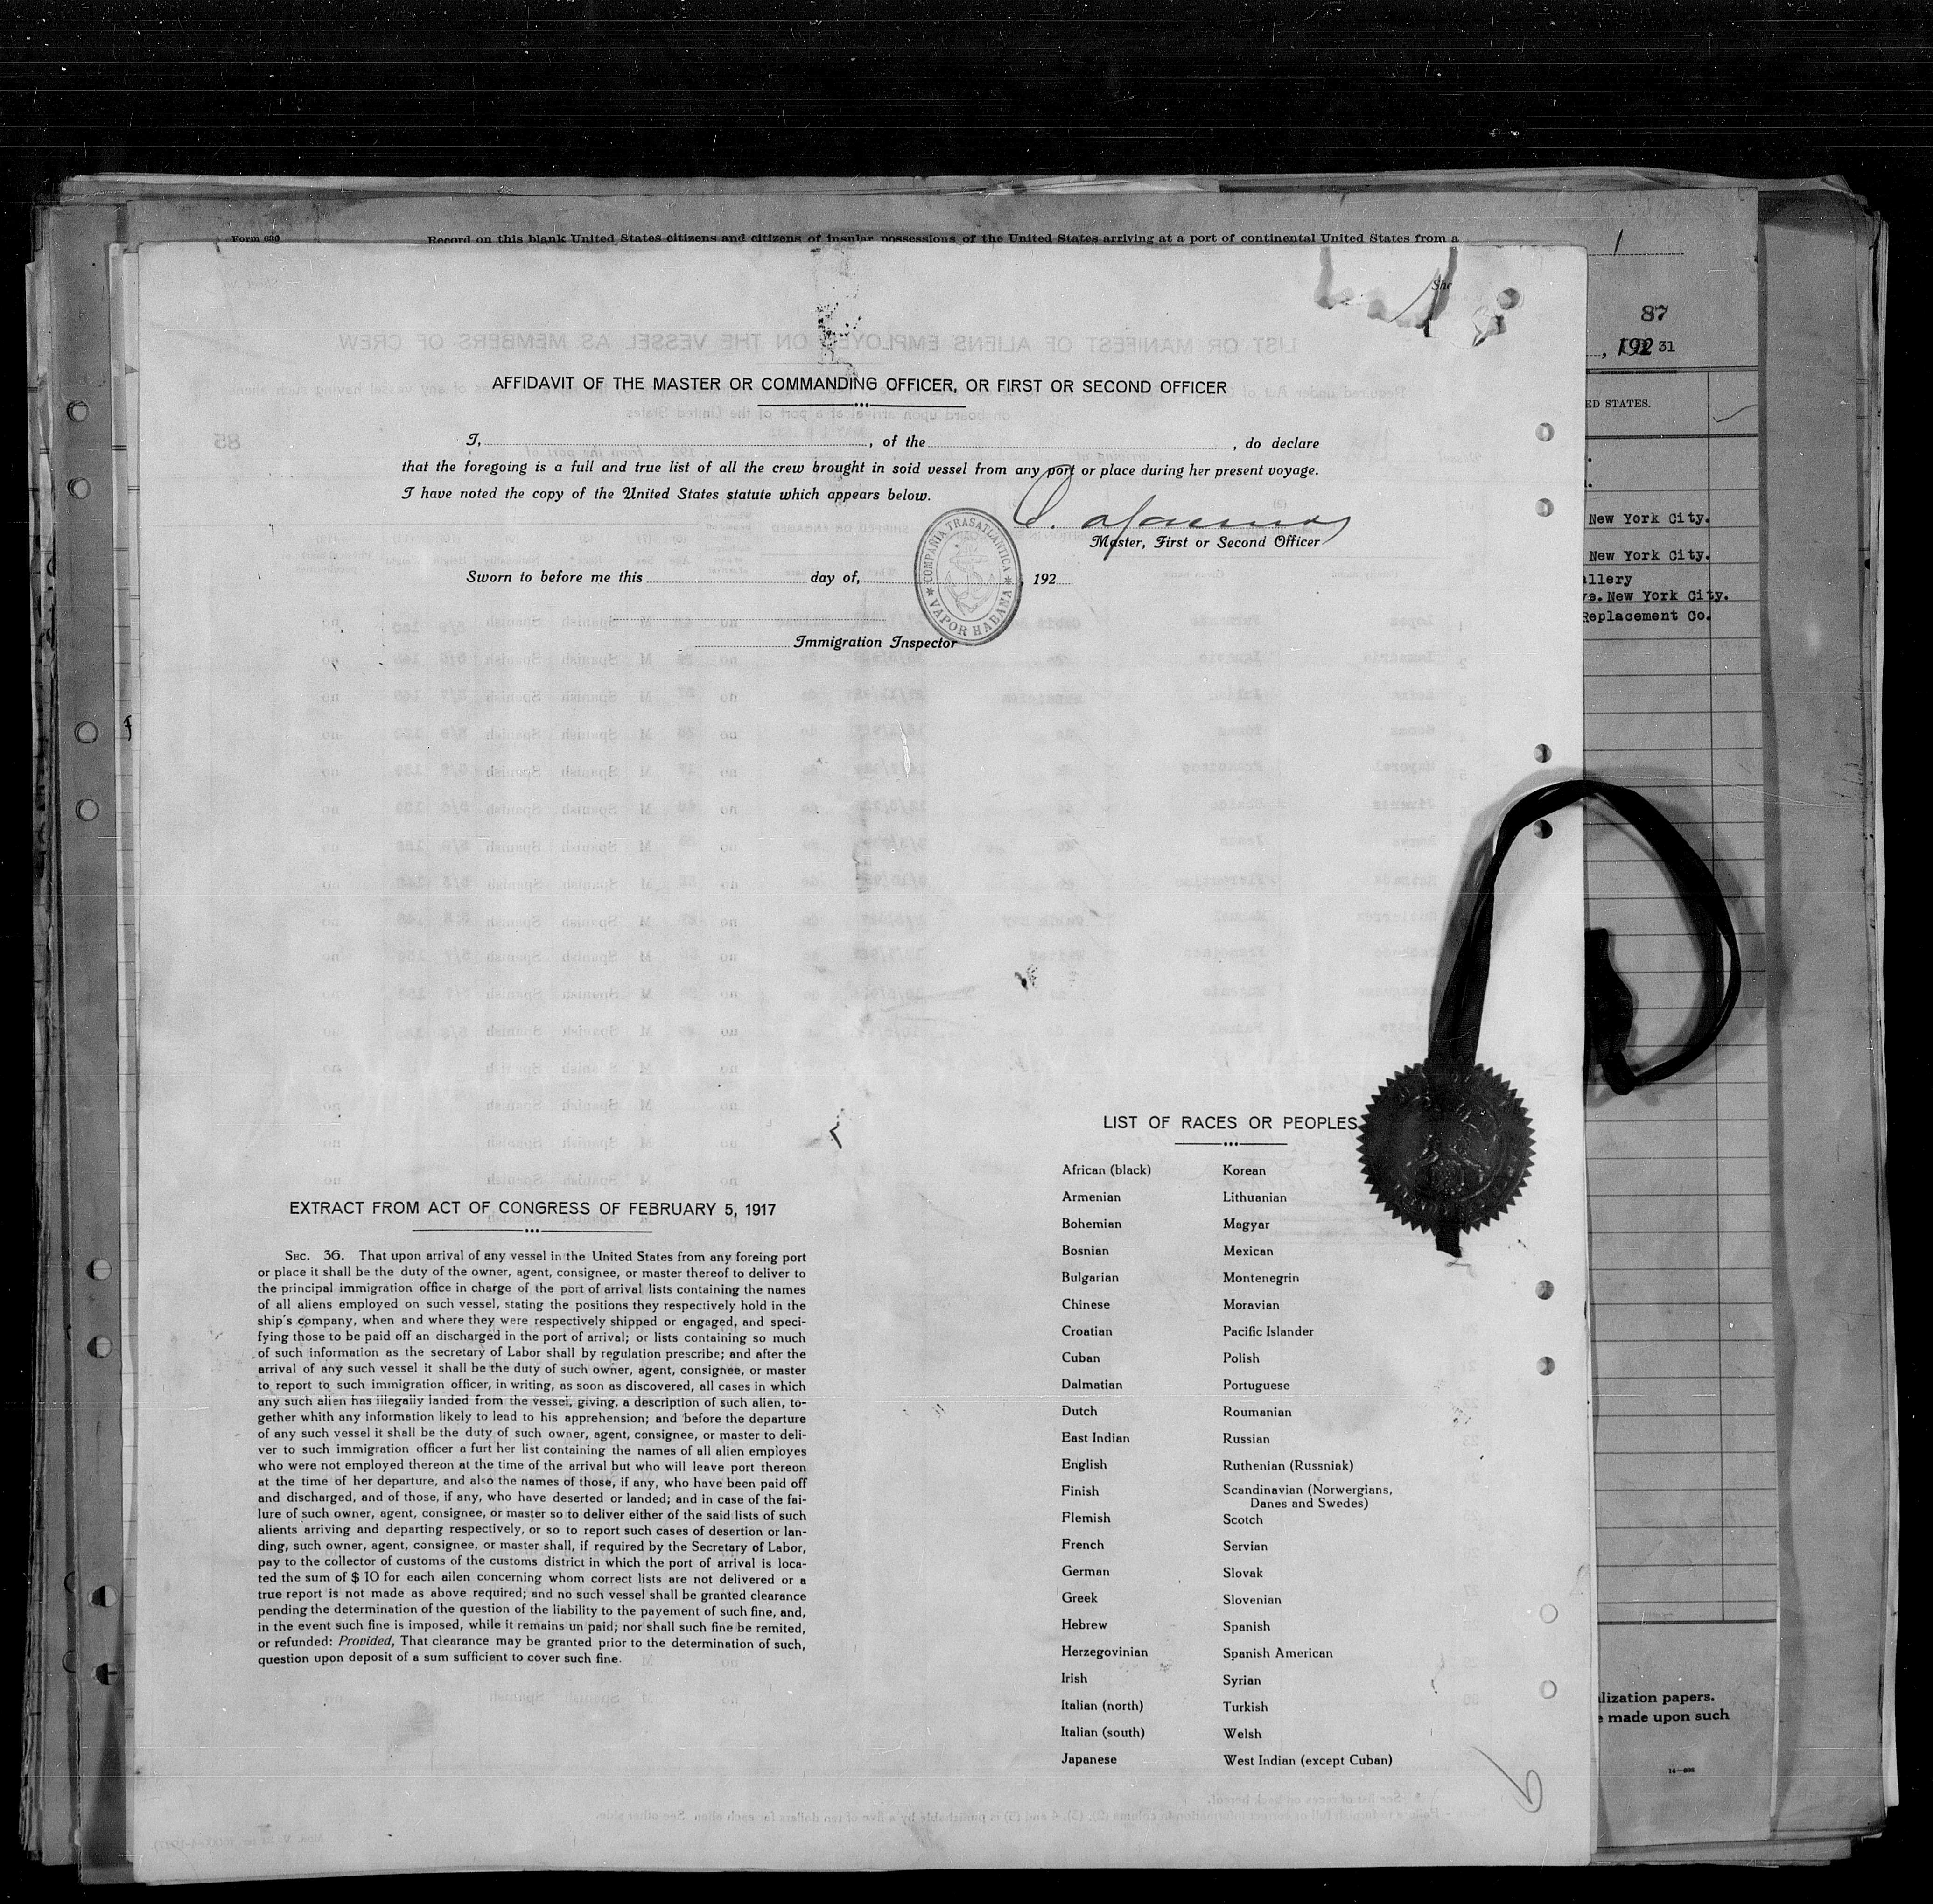 Form 630
Record on this blank United States citizens and citizens of insular possessions of the United States arriving at a port of continental United States from a
1
87
, 192 31
ED STATES.
New York City.
New York City.
allery
ve. New York City.
Replacement Co.
AFFIDAVIT OF THE MASTER OR COMMANDING OFFICER, OR FIRST OR SECOND OFFICER
I, , of the , do declare
that the foregoing is a full and true list of all the crew brought in soid vessel from any port or place during her present voyage.
I have noted the copy of the United States statute which appears below.
Master, First or Second Officer
COMPAÑIA TRASATLANTICA
VAPOR HABANA
Sworn to before me this day of, , 192
Immigration Inspector
EXTRACT FROM ACT OF CONGRESS OF FEBRUARY 5, 1917
SEC. 36. That upon arrival of any vessel in the United States from any foreing port
or place it shall be the duty of the owner, agent, consignee, or master thereof to deliver to
the principal immigration office in charge of the port of arrival lists containing the names
of all aliens employed on such vessel, stating the positions they respectively hold in the
ship's company, when and where they were respectively shipped or engaged, and speci-
fying those to be paid off an discharged in the port of arrival; or lists containing so much
of such information as the secretary of Labor shall by regulation prescribe; and after the
arrival of any such vessel it shall be the duty of such owner, agent, consignee, or master
to report to such immigration officer, in writing, as soon as discovered, all cases in which
any such alien has illegally landed from the vessel, giving, a description of such alien, to-
gether whith any information likely to lead to his apprehension; and before the departure
of any such vessel it shall be the duty of such owner, agent, consignee, or master to deli-
ver to such immigration officer a furt her list containing the names of all alien employes
who were not employed thereon at the time of the arrival but who will leave port thereon
at the time of her departure, and also the names of those, if any, who have been paid off
and discharged, and of those, if any, who have deserted or landed; and in case of the fai-
lure of such owner, agent, consignee, or master so to deliver either of the said lists of such
alients arriving and departing respectively, or so to report such cases of desertion or lan-
ding, such owner, agent, consignee, or master shall, if required by the Secretary of Labor,
pay to the collector of customs of the customs district in which the port of arrival is loca-
ted the sum of $ 10 for each ailen concerning whom correct lists are not delivered or a
true report is not made as above required; and no such vessel shall be granted clearance
pending the determination of the question of the liability to the payement of such fine, and,
in the event such fine is imposed, while it remains un paid; nor shall such fine be remited,
or refunded: Provided, That clearance may be granted prior to the determination of such,
question upon deposit of a sum sufficient to cover such fine.
LIST OF RACES OR PEOPLES
African (black)
Armenian
Bohemian
Bosnian
Bulgarian
Chinese
Croatian
Cuban
Dalmatian
Dutch
East Indian
English
Finish
Flemish
French
German
Greek
Hebrew
Herzegovinian
Irish
Italian (north)
Italian (south)
Japanese
Korean
Lithuanian
Magyar
Mexican
Montenegrin
Moravian
Pacific Islander
Polish
Portuguese
Roumanian
Russian
Ruthenian (Russniak)
Scandinavian (Norwergians,
Danes and Swedes)
Scotch
Servian
Slovak
Slovenian
Spanish
Spanish American
Syrian
Turkish
Welsh
West Indian (except Cuban)
lization papers.
made upon such
9